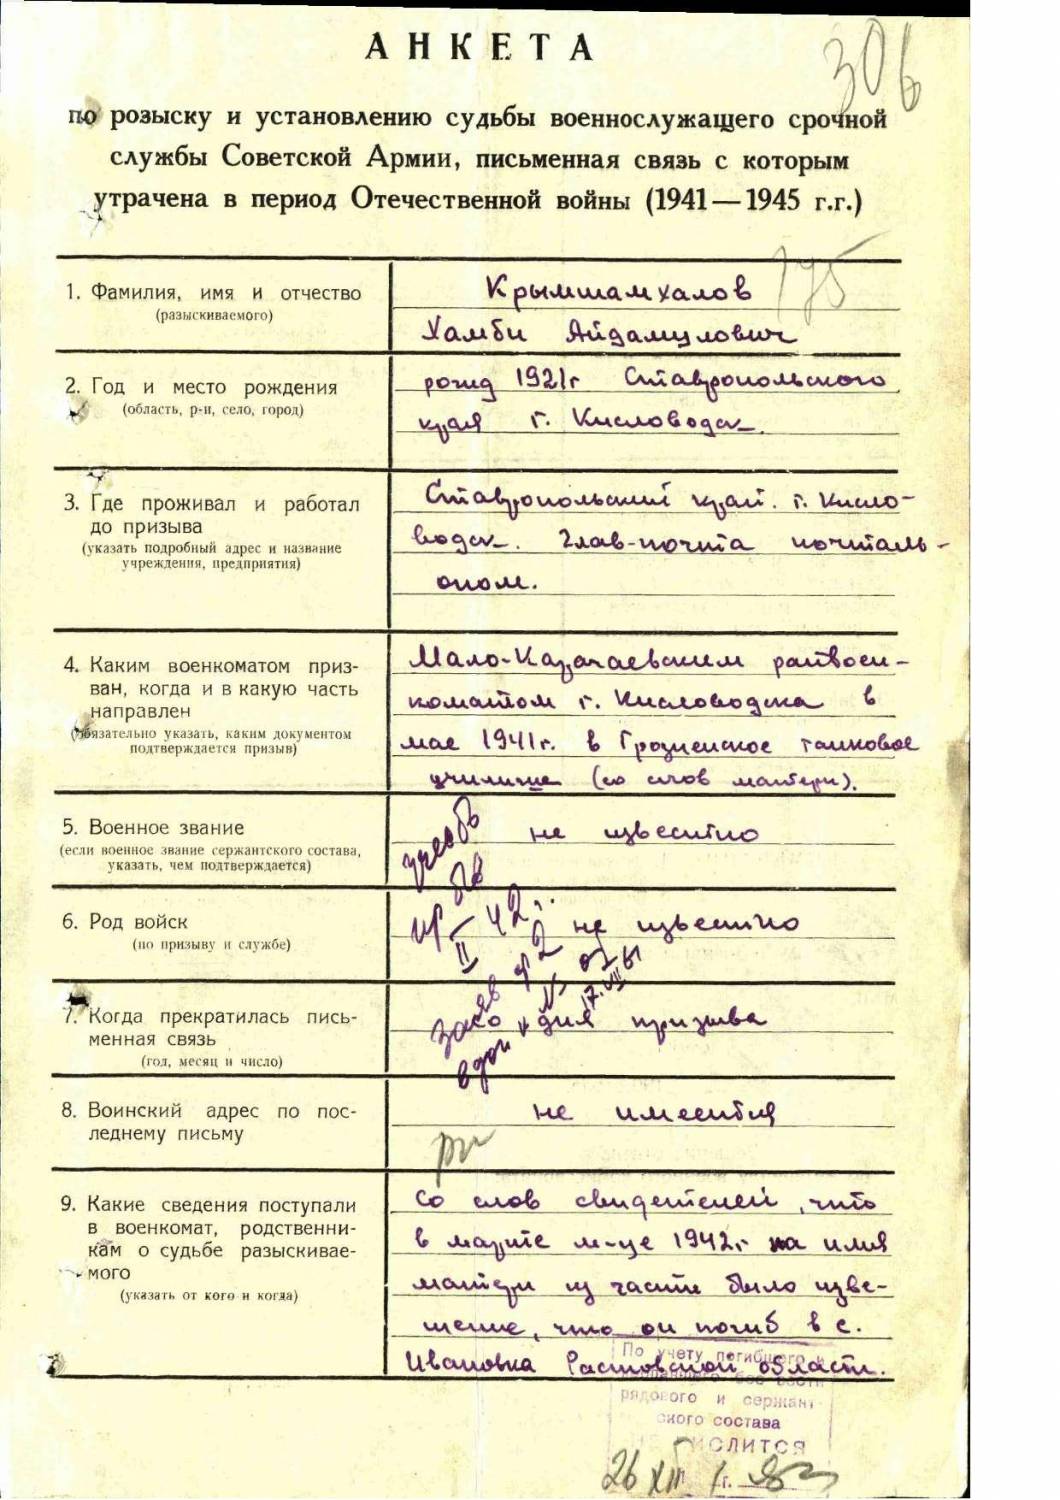 306
АНКЕТА
по розыску и установлению судьбы военнослужащего срочной
службы Советской Армии, письменная связь с которым
утрачена в период Отечественной войны (1941—1945 г.г.)
175
1. Фамилия, имя и отчество
(разыскиваемого)
Крымшамхалов
Хамби Айдамулович
2. Год и место рождения
(область, р-н, село, город)
рожд 1921г Ставропольского
края г. Кисловодск.
3. Где проживал и работал
до призыва
(указать подробный адрес и название
учреждения, предприятия)
Ставропольский край. г. Кисло-
водск. Глав-почта почталь-
оном.
4. Каким военкоматом приз-
ван, когда и в какую часть
направлен
(обязательно указать, каким документом
подтверждается призыв)
Мало-Карачаевским райвоен-
коматом г. Кисловодска в
мае 1941г. в Грозненское танковое
училище (со слов матери).
5. Военное звание
(если военное звание сержантского состава,
указать, чем подтверждается)
не известно
6. Род войск
(по призыву и службе)
не известно
7. Когда прекратилась пись-
менная связь
(год, месяц и число)
со дня призыва
17.VII 61
8. Воинский адрес по пос-
леднему письму
не имеется
9. Какие сведения поступали
в военкомат, родственни-
кам о судьбе разыскивае-
мого
(указать от кого и когда)
Со слов свидетелей, что
в марте м-це 1942г на имя
матери из части было изве-
щение, что он погиб в с.
Ивановка Растовской области.
По учету погибшего и
рядового и сержант-
ского состава
НЕ ЧИСЛИТСЯ
26 XII г.